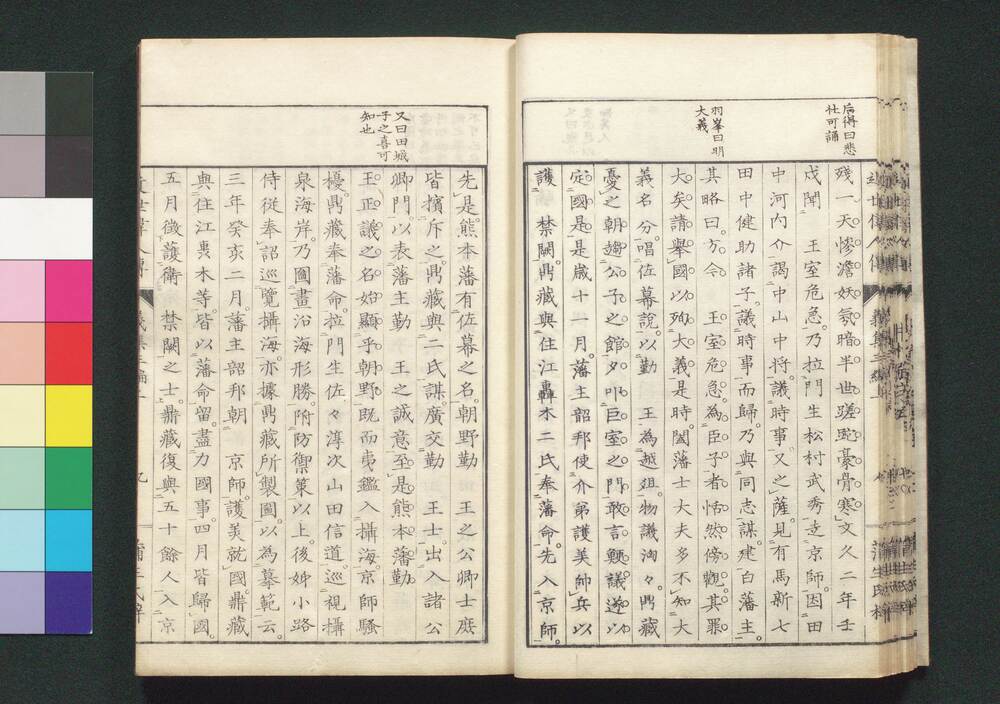 后得曰悲
壮可誦
羽峯曰明
大義
残一天惨澹妖氛暗半世蹉跎豪骨寒文久二年壬
戌聞 王室危急乃拉門生松村武秀走京師因田
中河内介謁中山中将議時事又之薩見有馬新七
田中健助諸子議時事而歸乃與同志謀建白藩主
其略曰方今 王室危急為臣子者恬然傍觀其罪
大矣請舉國以殉大義是時闔藩士大夫多不知大
義名分唱佐幕說以勤 王為越俎物議洶々鼎藏
憂之朝趨公子之館夕叩巨室之門敢言甄議遂以
定國是是歳十一月藩主韶邦使介弟護美帥兵以
護 禁闕鼎藏與住江轟木二氏奉藩命先入京師
又曰田城
子之喜可
知也
先是熊本藩有佐幕之名朝野勤 王之公卿士庶
皆擯斥之鼎藏與二氏謀廣交勤 王士出入諸公
卿門以表藩主勤 王之誠意至是熊本藩勤
王正議之名始顯乎朝野既而夷鑑入攝海京師騷
擾鼎藏奉藩命拉門生佐々淳次山田信道巡視攝
泉海岸乃圖畫沿海形勝附防禦策以上後姉小路
侍從奉詔巡覽攝海亦據鼎藏所製圖以為摹範云
三年癸亥二月藩主韶邦朝 京師護美就國鼎藏
與住江轟木等皆以藩命留盡力國事四月皆歸國
五月徴護衛 禁闕之士鼎藏復與五十餘人入京